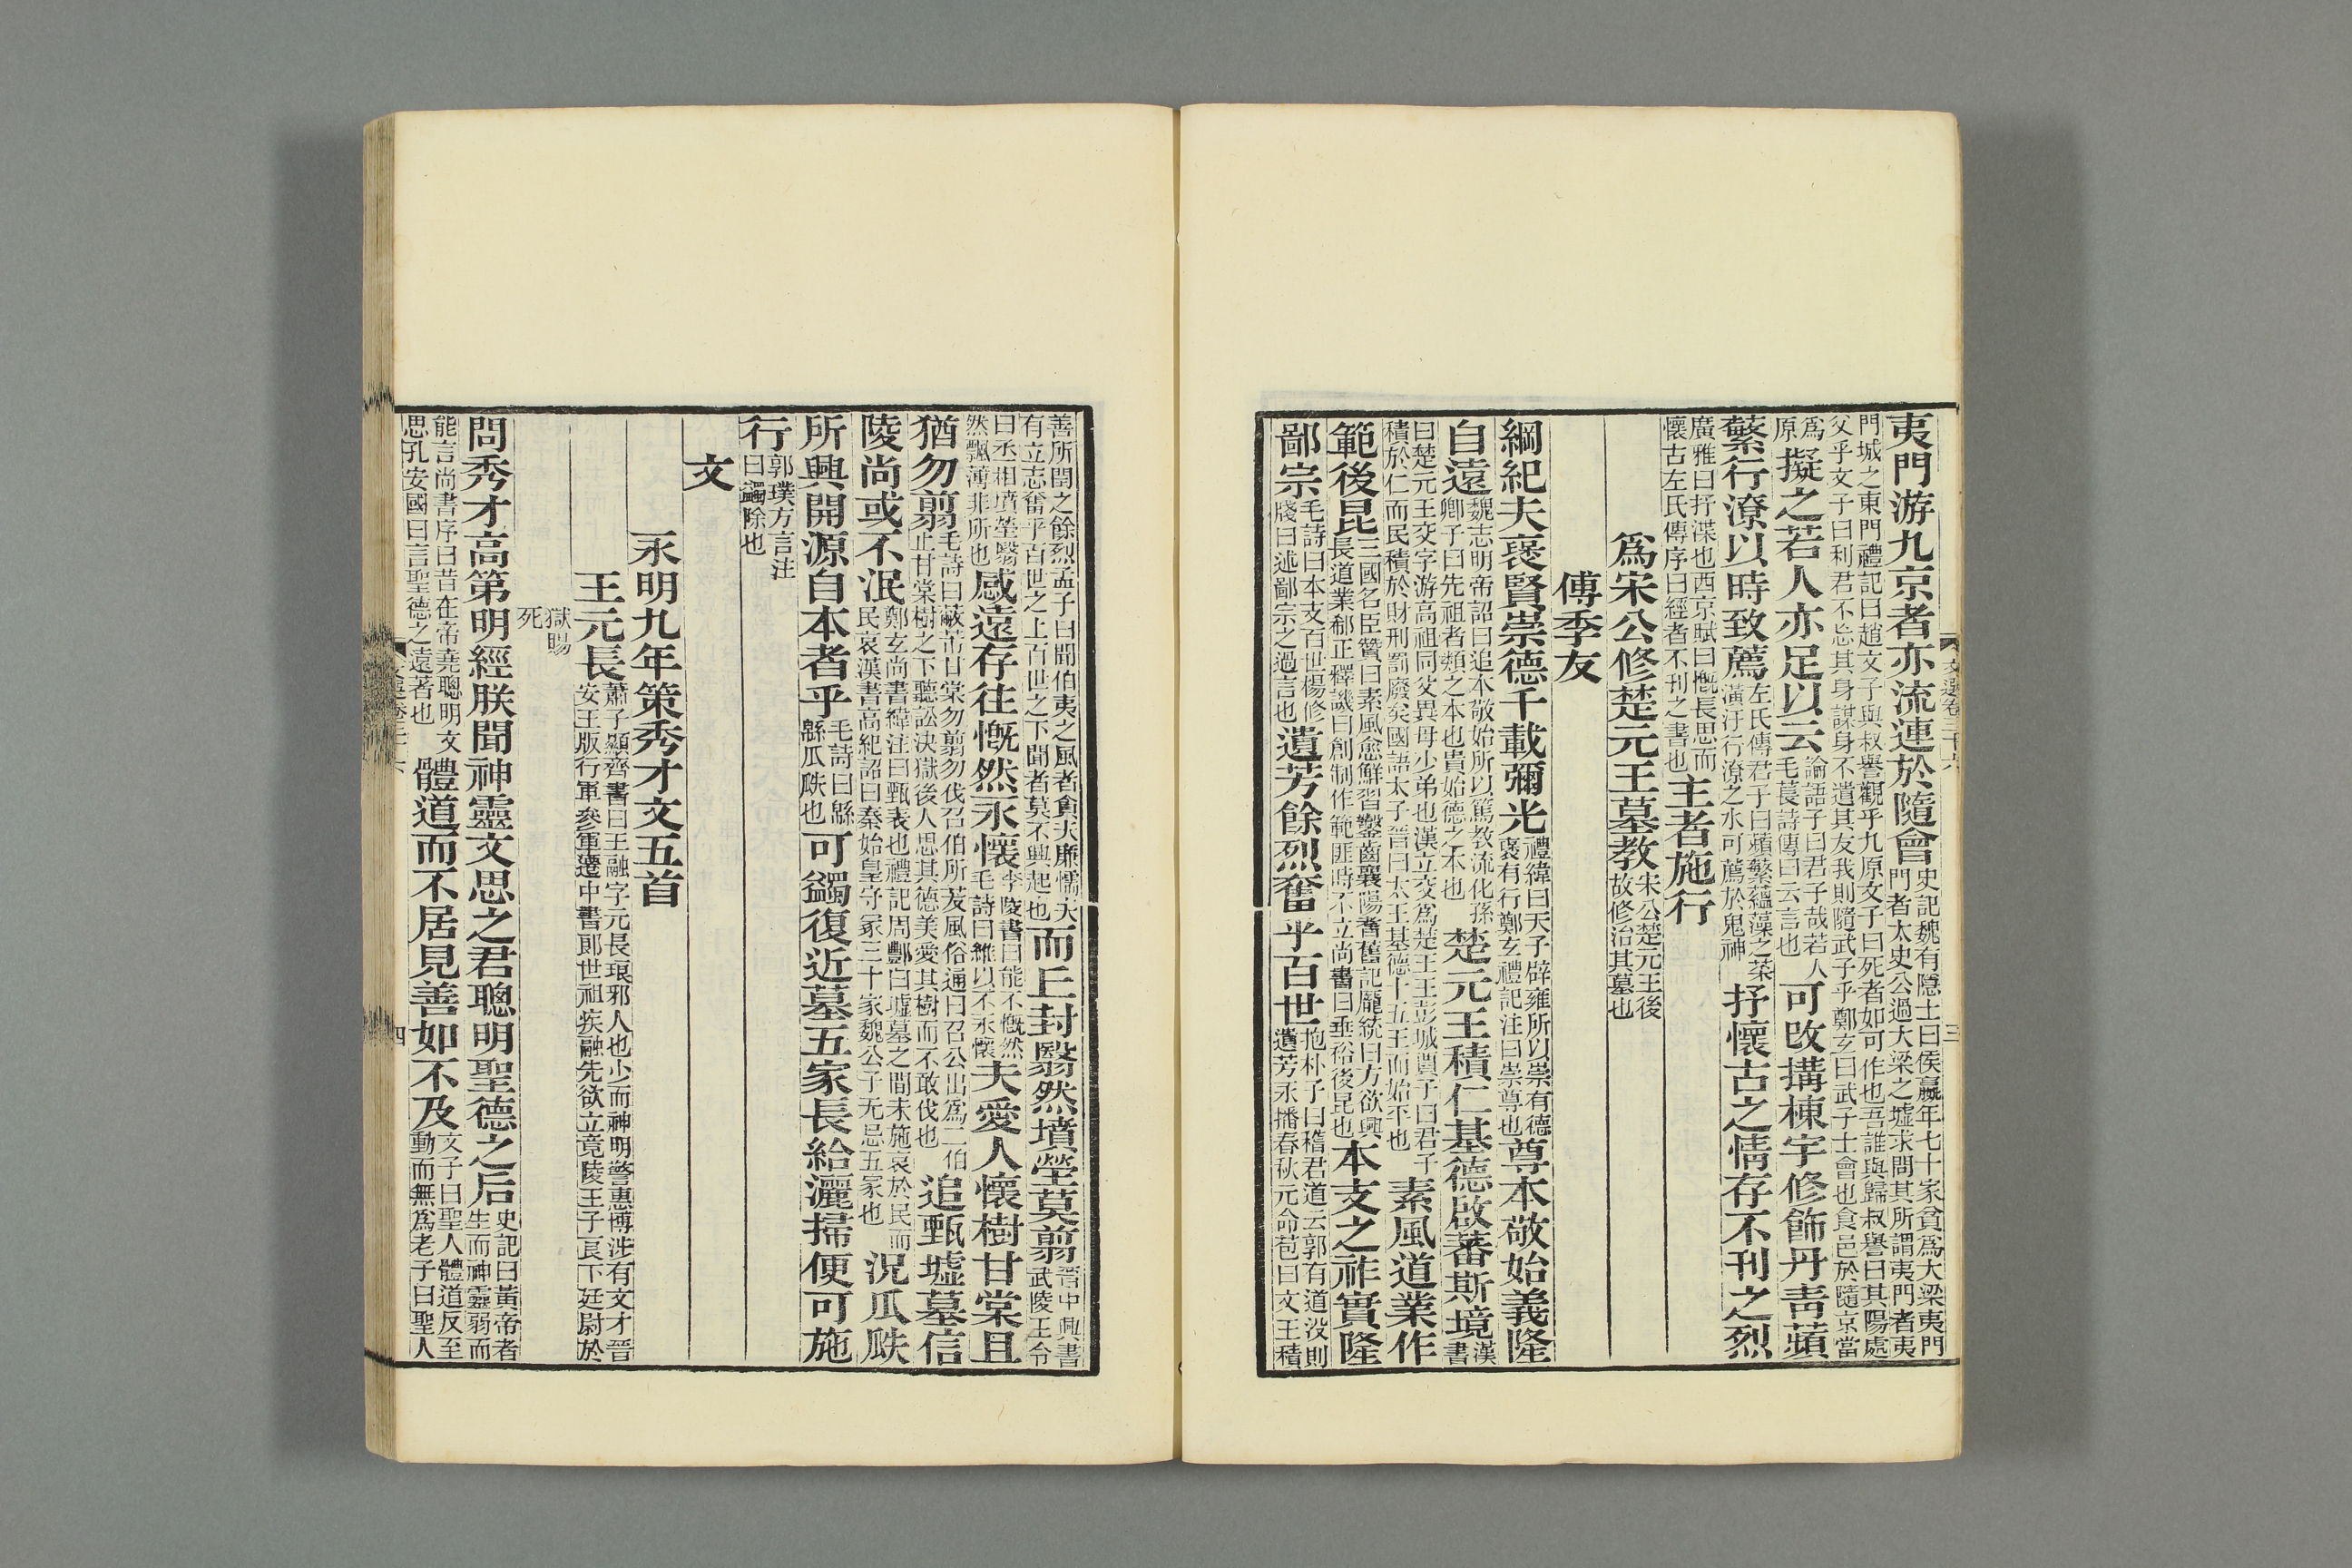 夷門游九京者亦流連於隨會史記魏有隱士曰侯嬴年七十家貧爲大梁夷門門者太史公過大梁之墟求問其所謂夷門者夷
門城之東門禮記曰趙文子與叔譽觀乎九原文子曰死者如可作也吾誰與歸叔譽曰其陽處父乎文子曰利君不忘其身謀身不遺其友我則隨武子乎鄭玄曰武子士會也食邑於隨京當
爲原擬之若人亦足以云論語子曰君子哉若人毛萇詩傳曰云言也可改搆棟宇修飾丹青蘋
蘩行潦以時致薦左氏傳君子曰蘋蘩蘊藻之菜潢汙行潦之水可薦於鬼神抒懷古之情存不刊之烈
廣雅曰抒渫也西京賦曰慨長思而懷古左氏傳序曰經者不刊之書也主者施行
爲宋公修楚元王墓教宋公楚元王後故修治其墓也
傅季友
綱紀夫褒賢崇德千載彌光禮緯曰天子辟雍所以崇有德褒有行鄭玄禮記注曰崇尊也尊本敬始義隆
自遠魏志明帝詔曰追本敬始所以篤教流化孫卿子曰先祖者類之本也貴始德之本也楚元王積仁基德啟蕃斯境漢書
曰楚元王交字游高祖同父異母少弟也漢立交爲楚王王彭城賈子曰君子積於仁而民積於財刑罰廢矣國語太子晉曰太王基德十五王而始平也素風道業作
範後昆三國名臣贊曰素風愈鮮習鑿齒襄陽耆舊記龐統曰方欲興長道業郄正釋譏曰創制作範匪時不立尚書曰垂裕後昆也本支之祚實隆
鄙宗毛詩曰本支百世楊修牋曰述鄙宗之過言也遺芳餘烈奮乎百世抱朴子曰稽君道云郭有道沒則遺芳永播春秋元命苞曰文王積
善所閏之餘烈孟子曰聞伯夷之風者貪夫廉懦夫有立志奮乎百世之上百世之下聞者莫不興起也而丘封翳然墳塋莫翦晉中興書武陵王令
曰丞相墳塋翳然飄薄非所也感遠存往慨然永懷李陵書曰能不慨然毛詩曰維以不永懷夫愛人懷樹甘棠且
猶勿翦毛詩曰蔽芾甘棠勿翦勿伐召伯所茇風俗通曰召公出爲二伯止甘棠樹之下聽訟決獄後人思其德美愛其樹而不敢伐也追甄墟墓信
陵尚或不泯鄭玄尚書緯注曰甄表也禮記周酆曰墟墓之間未施哀於民而民哀漢書高紀詔曰秦始皇守冢三十家魏公子无忌五家也況瓜瓞
所興開源自本者乎毛詩曰緜緜瓜瓞也可蠲復近墓五家長給灑掃便可施
行郭璞方言注曰蠲除也
文
永明九年策秀才文五首
王元長蕭子顯齊書曰王融字元長琅邪人也少而神明警惠博涉有文才晉安王版行軍參軍遷中書郎世祖疾融先欲立竟陵王子良下廷尉於
獄賜死
問秀才高第明經朕聞神靈文思之君聰明聖德之后史記曰黃帝者生而神靈弱而
能言尚書序曰昔在帝堯聰明文思孔安國曰言聖德之遠著也體道而不居見善如不及文子曰聖人體道反至動而無爲老子曰聖人
文選卷三十六
三
四